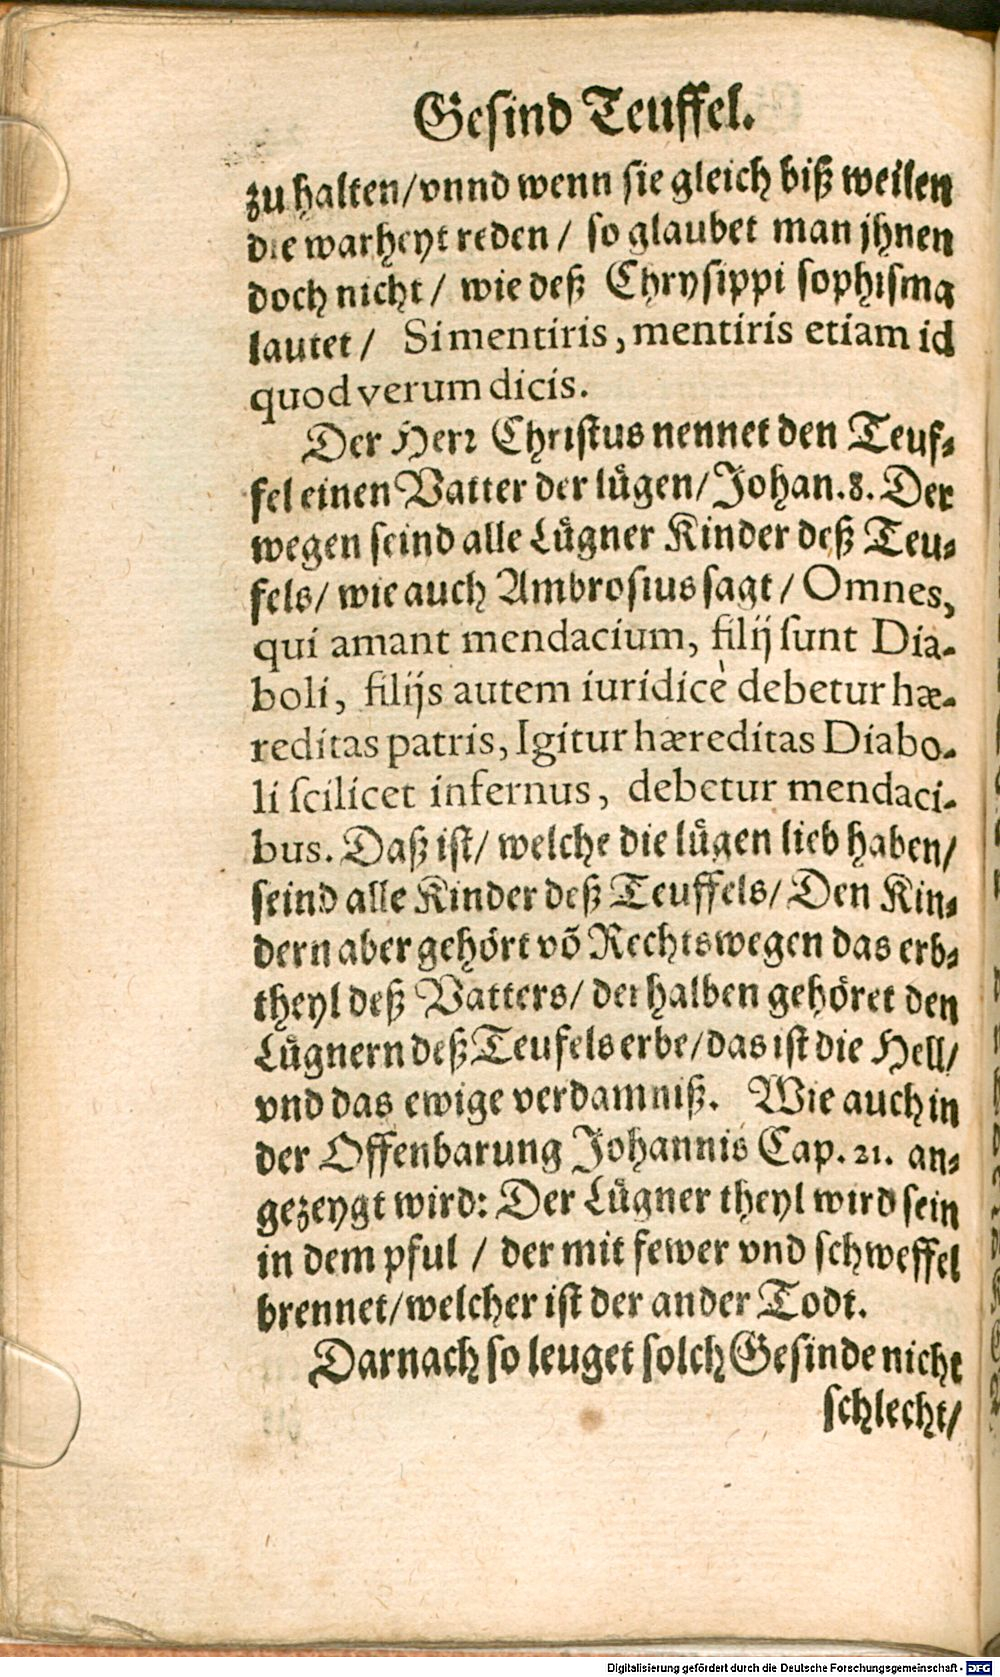 Gesind Teuffel.
zu halten/ vnnd wenn sie gleich biß weilen
die warheyt reden/ so glaubet man jhnen
doch nicht/ wie deß Chrysippi sophisma
lautet/ Si mentiris, mentiris etiam id
quod verum dicis.
Der Herr Christus nennet den Teuf-
fel einen Vatter der lügen/ Johan. 8. Der
wegen seind alle Lügner Kinder deß Teu-
fels/ wie auch Ambrosius sagt/ Omnes,
qui amant mendacium, filij sunt Dia-
boli, filijs autem iuridicè debetur hæ-
reditas patris, Igitur hæreditas Diabo-
li scilicet infernus, debetur mendaci-
bus. Daß ist/ welche die lügen lieb haben/
seind alle Kinder deß Teuffels/ Den Kin-
dern aber gehört võ Rechtswegen das erb-
theyl deß Vatters/ derhalben gehöret den
Lügnern deß Teufels erbe/ das ist die Hell/
vnd das ewige verdamniß. Wie auch in
der Offenbarung Johannis Cap. 21. an-
gezeygt wird: Der Lügner theyl wird sein
in dem pful / der mit fewer vnd schweffel
brennet/ welcher ist der ander Todt.
Darnach so leuget solch Gesinde nicht
schlecht/
Digitalisierung gefördert durch die Deutsche Forschungsgemeinschaft - DFG